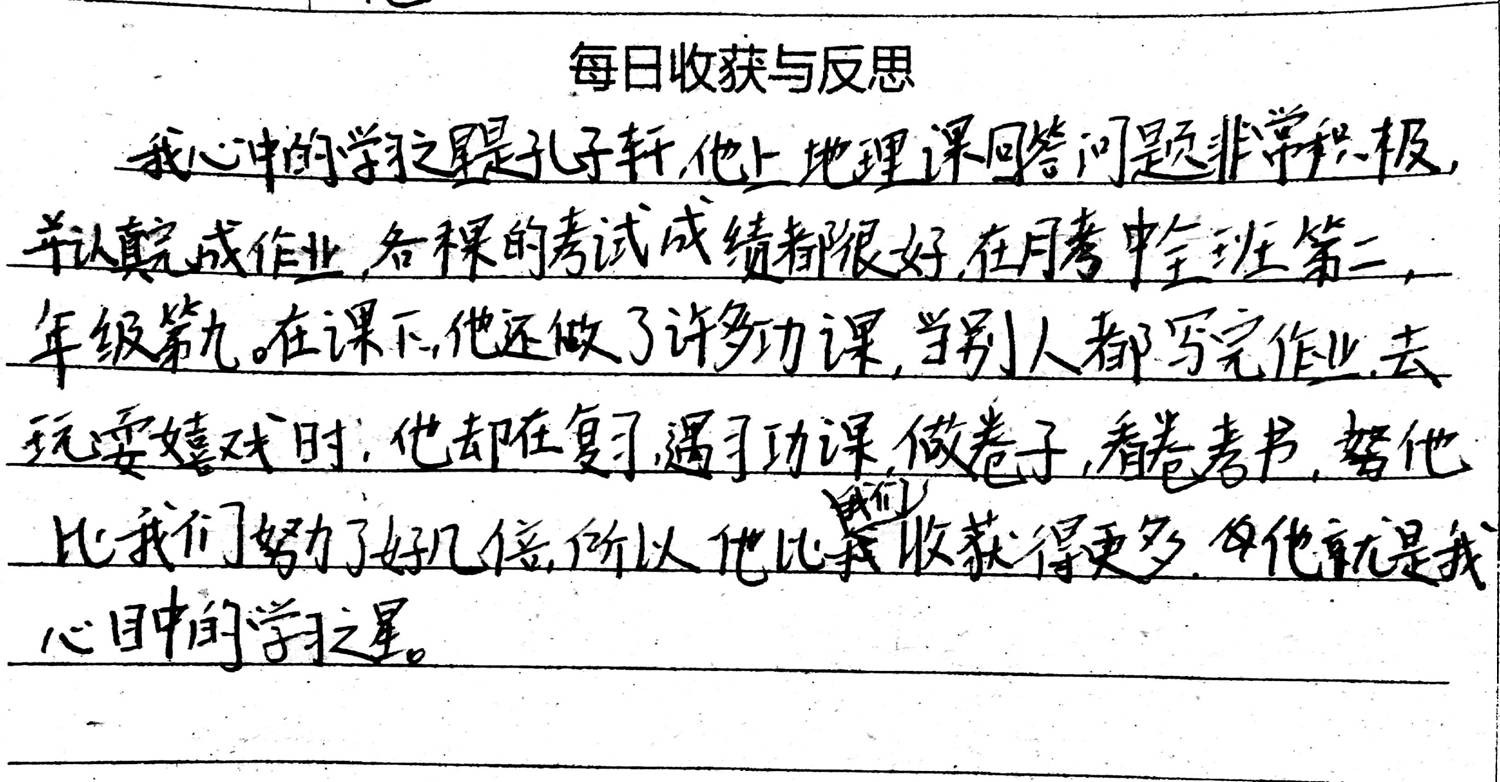 每日收获与反思
我心中的学习之星是孔子轩,他上地理课回答问题非常积极,
并认真完成作业,各科的考试成绩都很好,在月考中全班第二,
年级第九。在课下,他还做了许多功课,当别人都写完作业,去
玩耍嬉戏时,他却在复习,温习功课,做卷子,看卷考书,努他
比我们努力了好几倍,所以他比我们收获得更多,他就是我
心目中的学习之星。